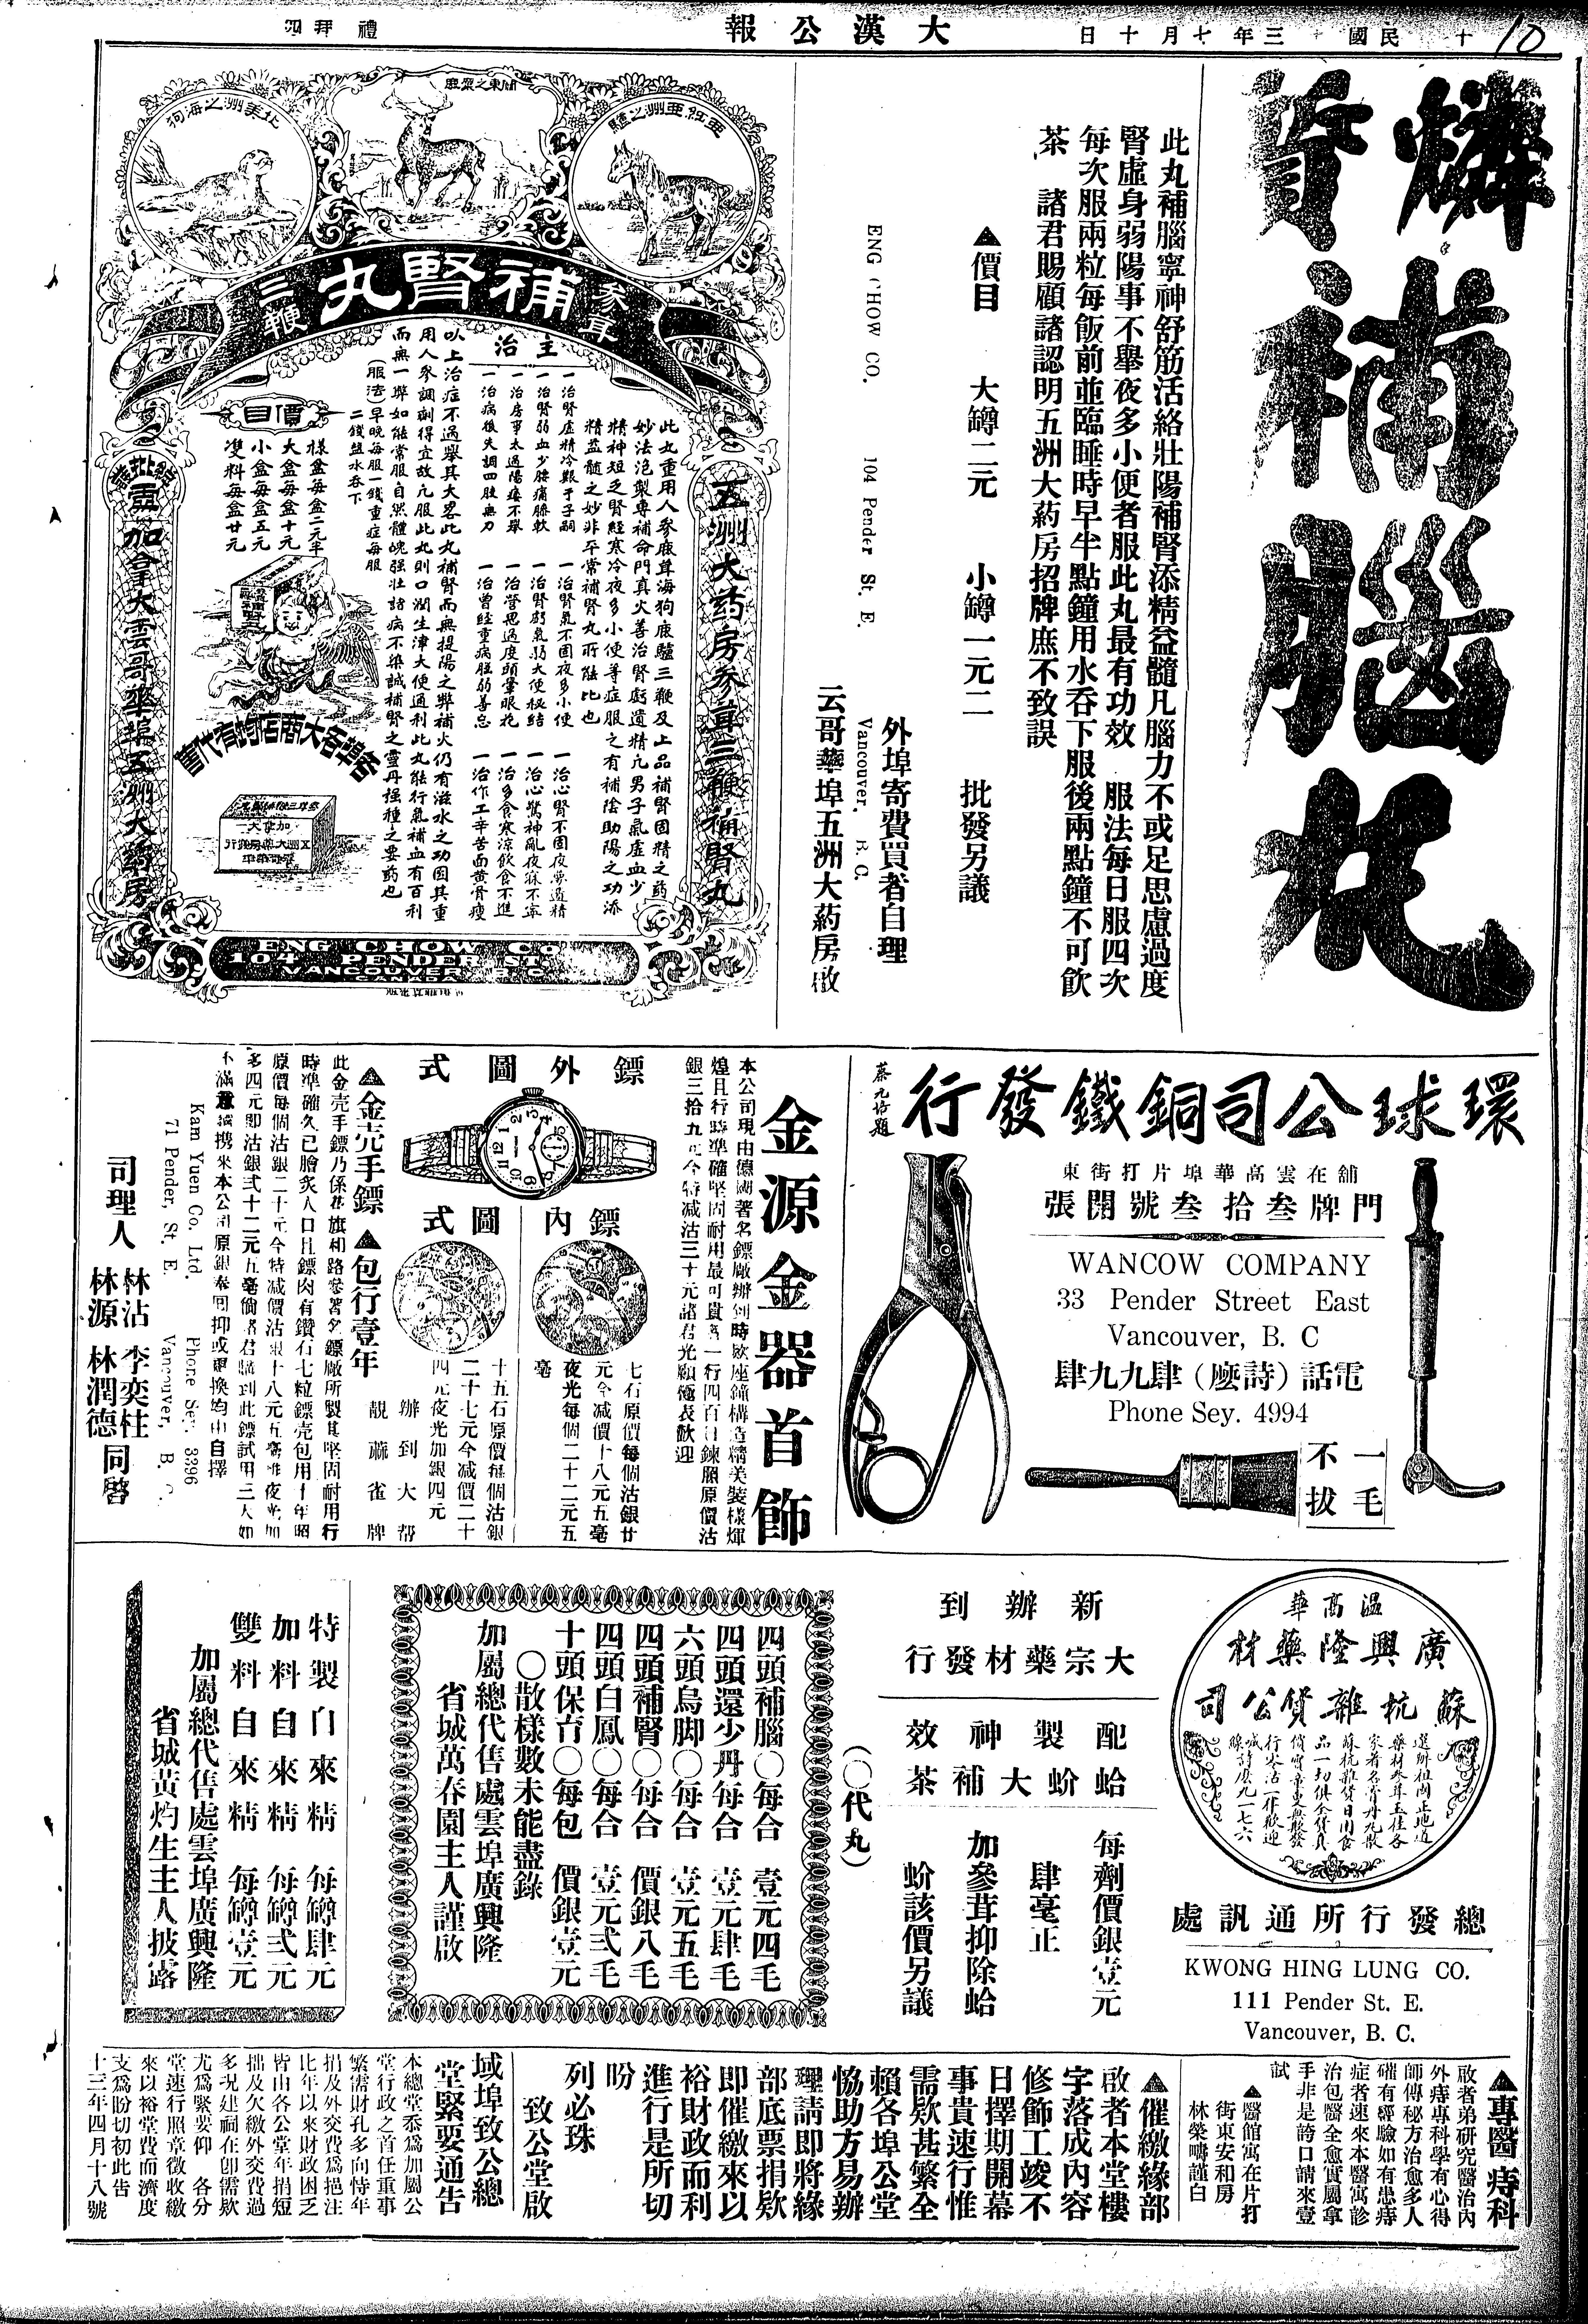 禮拜四
大漢公報
民國十三年七月十日
10
燐質補腦丸
此丸補腦寧神舒筋活絡壯陽補腎添精益髓凡腦力不或足思慮過度
腎虛身弱陽事不舉夜多小便者服此丸最有功效　服法每日服四次
每次服兩粒每飯前並臨睡時早半點鐘用水吞下服後兩點鐘不可飲
茶　諸君賜顧諸認明五洲大葯房招牌庶不致誤
▲價目　大罇二元　小罇一元二　批發另議
外埠寄費買者自理
ENG CHOW CO. 104 Pender St. E. Vancouver, B. C.
云哥華埠五洲大葯房啟
亞非亞洲之驢
關東之鹿
北美洲之海狗
參茸補腎丸三鞭
五洲大葯房參茸三鞭補腎丸
主治
此丸重用人參鹿茸海狗鹿驢三鞭及上品補腎固精之葯
妙法泡製專補命門真火善治腎虧遺精凢男子氣虛血少
精神短乏腎經寒冷夜多小便等症服之有補陰助陽之功添
精益髓之妙非平常補腎丸所能比也
一治腎虛精冷艱于子嗣　一治腎氣不固夜多小便　一治心腎不固夜夢遺精
一治腎弱血少腰痛膝軟　一治腎虧氣弱大便秘結　一治心驚神亂夜寐不寧
一治房事太過陽痿不舉　一治營思過度頭暈眼花　一治多食寒涼飲食不進
一治病後失調四肢無力　一治曾經重病體弱善忘　一治作工辛苦面黃骨瘦
以上治症不過舉其大畧此丸補腎而無提陽之弊補火仍有滋水之功因其重
用人參調劑得宜故凢服此丸則口潤生津大便通利此丸能行氣補血有百利
而無一弊如能常服自然體魄强壯諸病不染誠補腎之靈丹种種之要葯也
(服法)早晚每服一錢重症每服
二錢塩水吞下
價目
樣盒每盒二元半
大盒每盒十元
小盒每盒五元
雙料每盒廿元
各埠各大商店均有代售
加拿大雲哥華埠五洲大葯房
ENG CHOW Co
104 PENDER ST.
VANCOUVER B. C.
CANADA
環球公司銅鐵發行
蔡元培題
舖在雲高華埠片打街東
門牌叁拾叁號開張
WANCOW COMPANY
33 Pender Street East
Vancouver, B. C
電話（詩麼）肆九九肆
Phone Sey. 4994
一毛不拔
金源金器首飾
本公司現由德國著名鏢廠辦到時欵座鐘構造精美裝樣煇
煌且行時準確堅固耐用最可貴者一行四百日鍊原價沽
銀三拾九元今特减沽三十元諸君光顧極表歡迎
鏢外圖式
鏢內圖式
七石原價每個沽銀廿
元今减價十八元五毫
夜光每個二十二元五
毫
十五石原價每個沽銀
二十七元今减價二十
四元夜光加銀四元
辦到大帮
靚蔴雀牌
▲金壳手鏢　▲包行壹年
此金壳手鏢乃係花旗和路咹著名鏢廠所製其堅固耐用行
時準確久已膾炙人口且鏢肉有鑽石七粒鏢壳包用十年照
原價每個沽銀二十元今特减價沽銀十八元五毫惟夜光加
多四元即沽銀弍十二元五毫倘諸君購到此鏢試用三天如
不滿意請携來本公司原銀奉回抑或更換均由自擇
Kam Yuen Co. Ltd. Phone Sey. 3396
71 Pender, St. E. Vancouver, B. C.
司理人　林沾　李奕柱　林源　林潤德　同啓
溫高華
廣興隆藥材
蘇杭雜貨公司
選辦祖國正地道
藥材參茸玉桂各
家著名膏丹丸散
蘇杭雜貨日用食
品一切俱全貨真
價實童叟無欺發
行零沽一律歡迎
喊線詩麽九一七六
總發行所通訊處
KWONG HING LUNG CO.
111 Pender St. E.
Vancouver, B. C.
新辦到
大宗藥材發行
配製神效
蛤蚧大補茶
每劑價銀壹元
肆毫正
加參茸抑除蛤
蚧該價另議
（〇代丸）
四頭補腦〇每合　壹元四毛
四頭還少丹每合　壹元肆毛
六頭烏脚〇每合　壹元五毛
四頭補腎〇每合　價銀八毛
四頭白鳳〇每合　壹元弍毛
十頭保育〇每包　價銀壹元
〇散樣數未能盡錄
加屬總代售處雲埠廣興隆
省城萬春園主人謹啟
特製自來精　每罇肆元
加料自來精　每罇弍元
雙料自來精　每罇壹元
加屬總代售處雲埠廣興隆
省城黃灼生主人披露
▲專醫痔科
啟者弟研究醫治內
外痔專科學有心得
師傳秘方治愈多人
確有經驗如有患痔
症者速來本醫寓診
治包醫全愈實屬拿
手非是誇口請來壹
試
▲醫館寓在片打
街東安和房
林榮疇謹白
▲催繳緣部
啟者本堂樓
宇落成內容
修飾工竣不
日擇期開幕
事貴速行惟
需欵甚繁全
賴各埠公堂
恊助方易辦
理請即將緣
部底票捐欵
即催繳來以
裕財政而利
進行是所切
盼
列必珠
致公堂啟
域埠致公總
堂緊要通告
本總堂忝爲加屬公
堂行政之首任重事
繁需財孔多向恃年
捐及外交費爲挹注
比年以來財政困乏
皆由各公堂年捐短
拙及欠繳外交費過
多現建祠在卽需欵
尤爲緊要仰　各分
堂速行照章徵收繳
來以裕堂費而濟度
支爲盼切初此告
十三年四月十八號